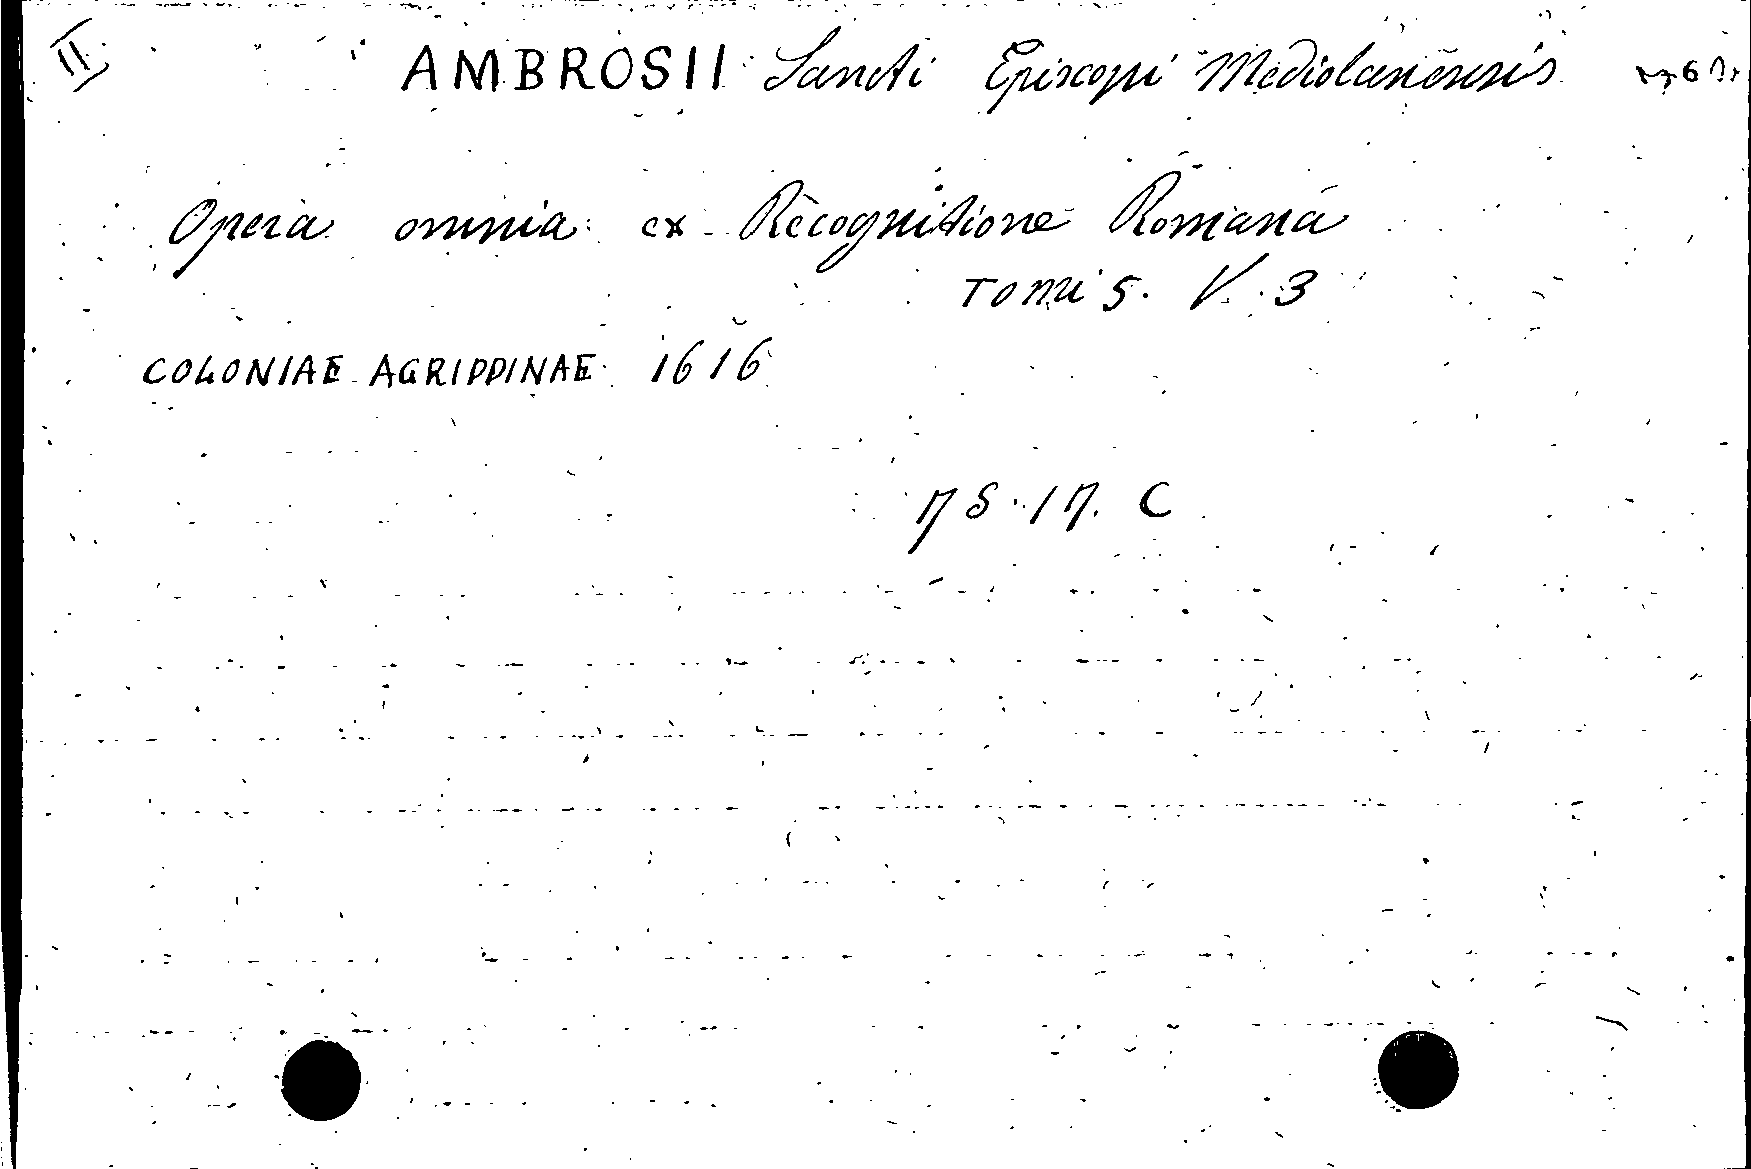 II AMBROSII Sancti Episcopi Mediolanensis
Opera omnia ex Recognitione Romana
Tomi 5. V. 3
COLONIAE AGRIPPINAE 1616
C